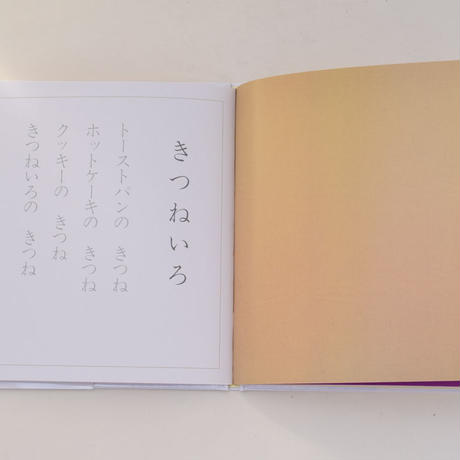 きつねいろ
トーストパンの　きつね
ホットケーキの　きつね
クッキーの　きつね
きつねいろの　きつね